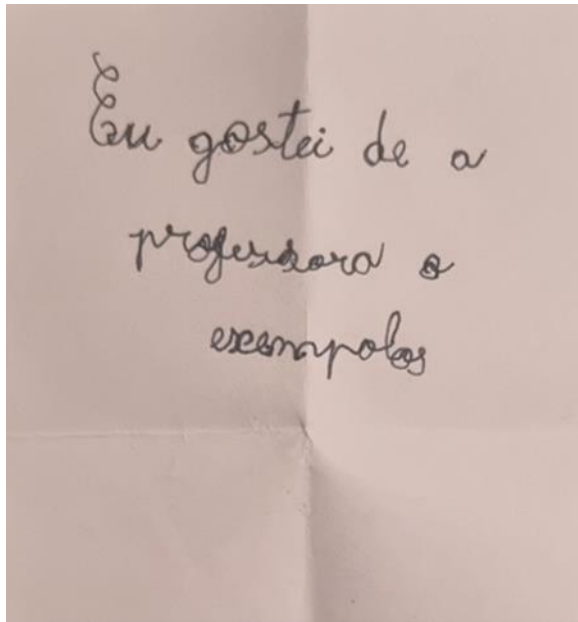 Eu gostei de a
professora o
exempolos